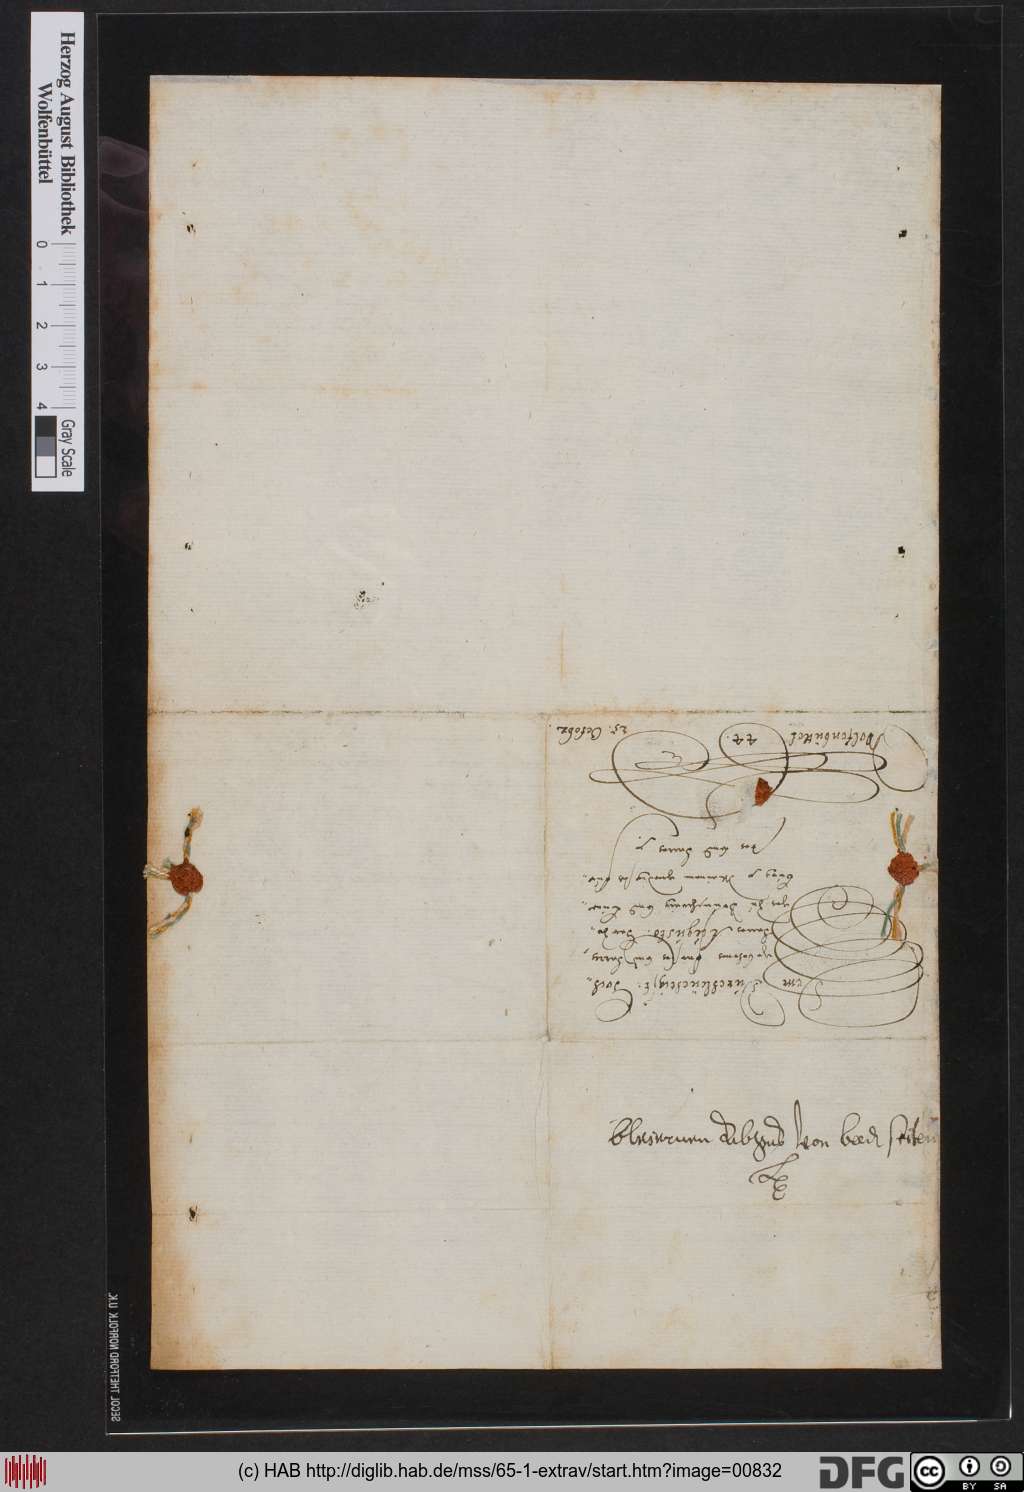 Herzog August Bibliothek
Wolfenbüttel
0 1 2 3 4
Gray Scale
Dem Durchleuchtigst: Hoch,,
gebohrnen Fürsten und Herren,
Herren Augusto, Her do,,
gen zu Braunschweig und Lüne,,
burg Meinem gnedig
und Herren
Wolfenbüttel 44. 25. Octobr.
von beed seiten
SECOL THETFORD NORFOLK U.K.
(c) HAB http://diglib.hab.de/mss/65-1-extrav/start.htm?image=00832
DFG
cc BY SA